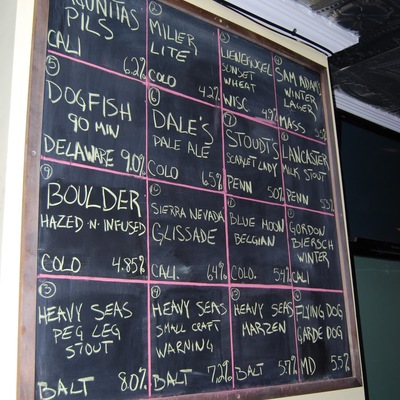 PILS
CALI 6.2%
②
MILLER
LITE
COLO 4.2%
③
SUNSET
WHEAT
WISC 4.9%
④
SAM ADAMS
WINTER
LAGER
MASS
⑤
DOGFISH
90 MIN
DELAWARE 9.0%
⑥
DALE'S
PALE ALE
COLO 6.5%
⑦
STOUDT'S
SCARLET LADY
PENN 5.0%
⑧
LANCASTER
MILK STOUT
PENN
⑨
BOULDER
HAZED 'N' INFUSED
COLO 4.85%
SIERRA NEVADA
GLISSADE
CALI. 6.4%
BLUE MOON
BELGIAN
COLO. 5.4%
GORDON
BIERSCH
WINTER
CALI
HEAVY SEAS
PEG LEG
STOUT
BALT 8.0%
HEAVY SEAS
SMALL CRAFT
WARNING
BALT 7.2%
HEAVY SEAS
MARZEN
BALT 5.7%
FLYING DOG
GARDE DOG
MD 5.5%